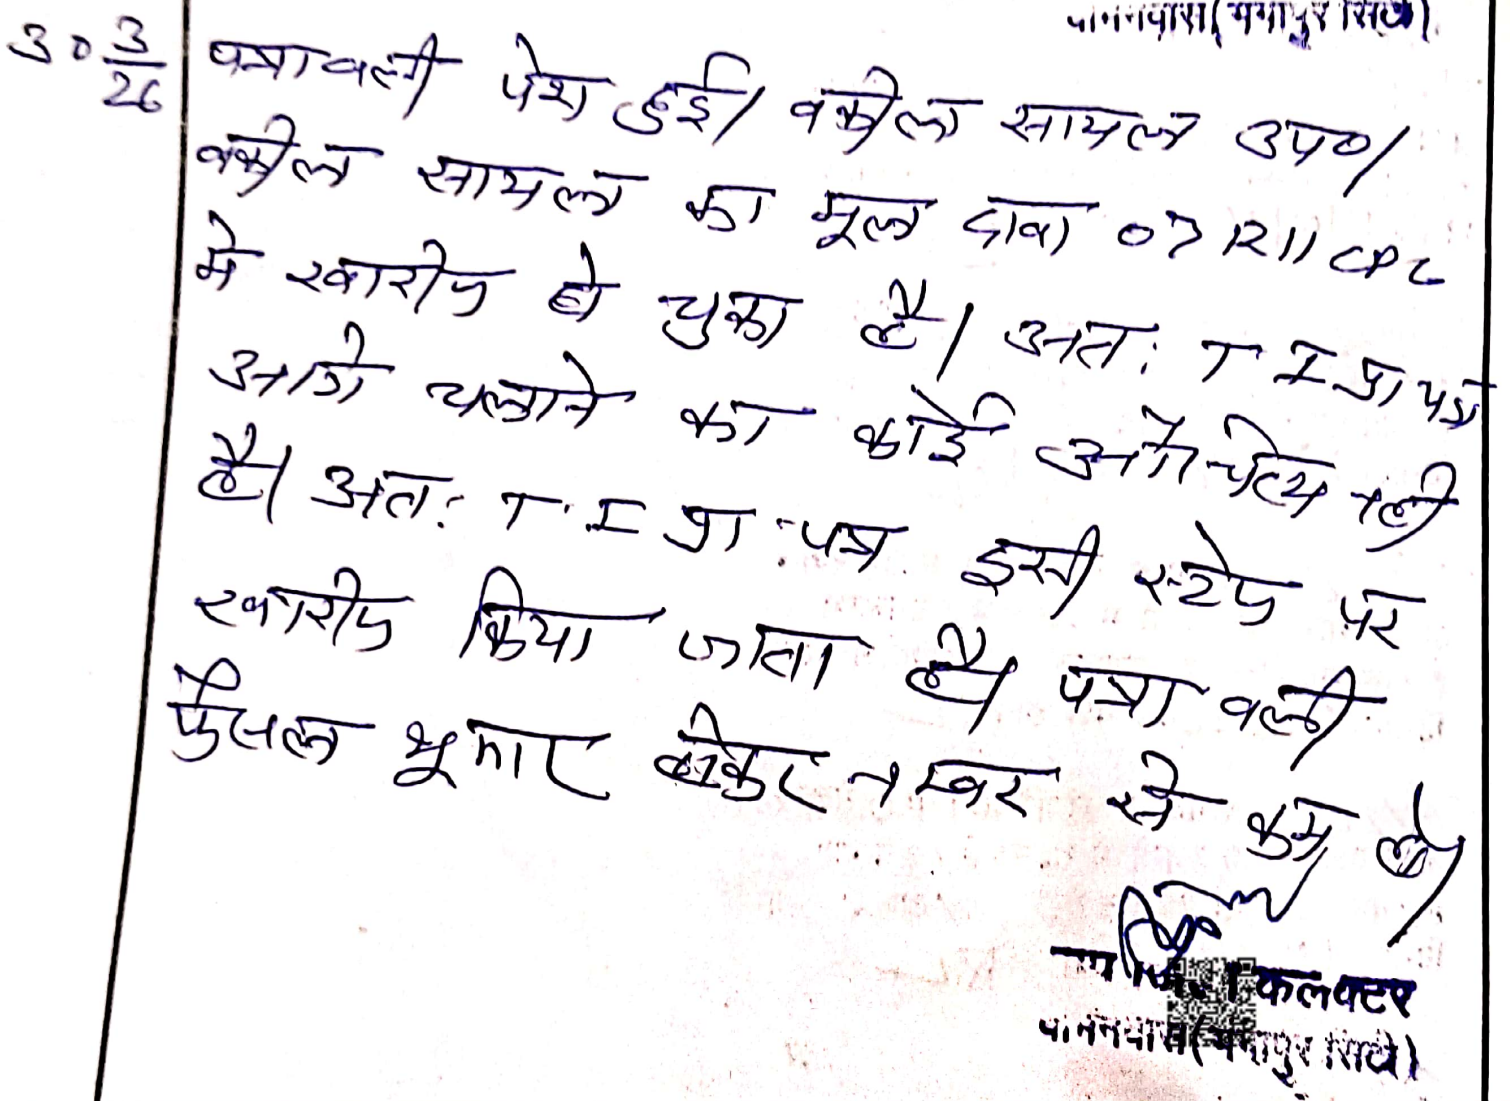 बामनवास(गंगापुर सिटी)
30 3/26 पत्रावली पेश हुई। वकील सायल उप०।
वकील सायल का मूल दावा 07 R11 CPC
मे खारीज हो चुका है। अतः T I प्रा पत्र
आगे चलाने का कोई औचित्य नही
है। अतः T.I प्रा.पत्र इसी स्टेज पर
खारीज किया जाता है। पत्रावली
फैसल शूमार होकर नम्बर से कम हो।
कलक्टर
बामनवास(गंगापुर सिटी)